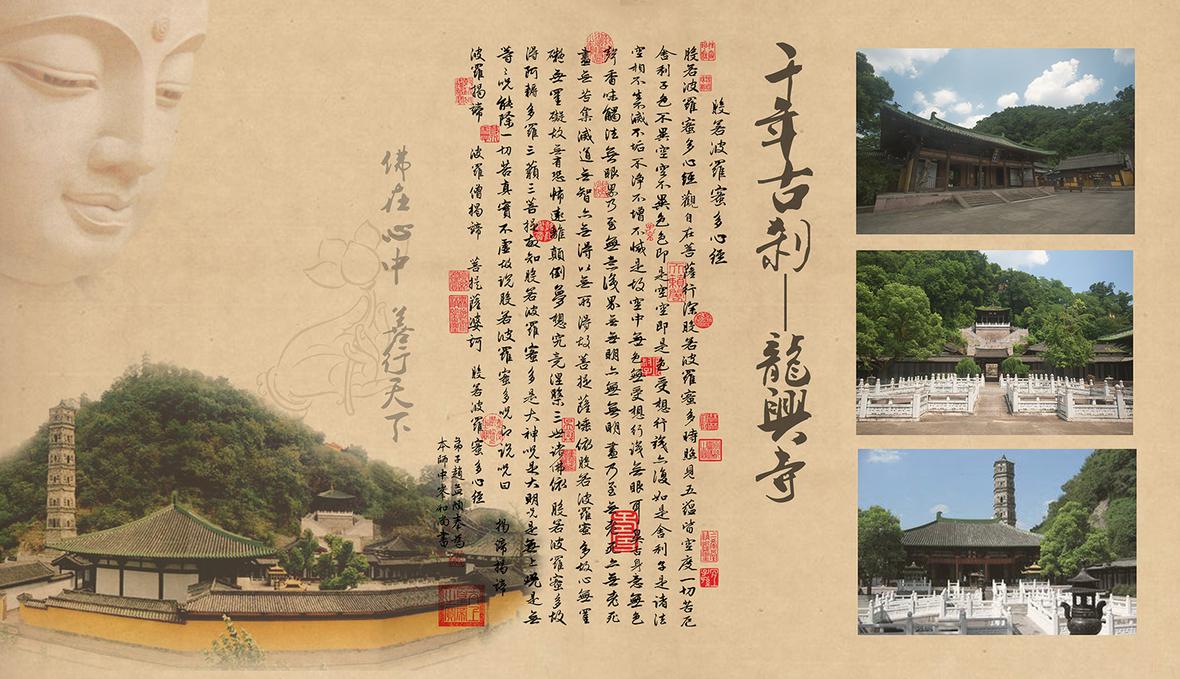 千年古刹—龍興寺
般若波羅蜜多心經
般若波羅蜜多心經觀自在菩薩行深般若波羅蜜多時照見五蘊皆空度一切苦厄
舍利子色不異空空不異色色即是空空即是色受想行識亦復如是舍利子是諸法
空相不生滅不垢不淨不增不減是故空中無色無受想行識無眼耳鼻舌身意無色
聲香味觸法無眼界乃至無意識界無無明亦無無明盡乃至無老死亦無老死
盡無苦集滅道無智亦無得以無所得故菩提薩埵依般若波羅蜜多故心無罣
礙無罣礙故無有恐怖遠離顛倒夢想究竟涅槃三世諸佛依般若波羅蜜多故
得阿耨多羅三藐三菩提故知般若波羅蜜多是大神咒是大明咒是無上咒是無
等〻咒能除一切苦真實不虛故說般若波羅蜜多咒即說咒曰 揭諦揭諦
波羅揭諦 波羅僧揭諦 菩提薩婆訶 般若波羅蜜多心經
弟子趙孟頫奉為
本師中峯和尚書
佛在心中 善行天下